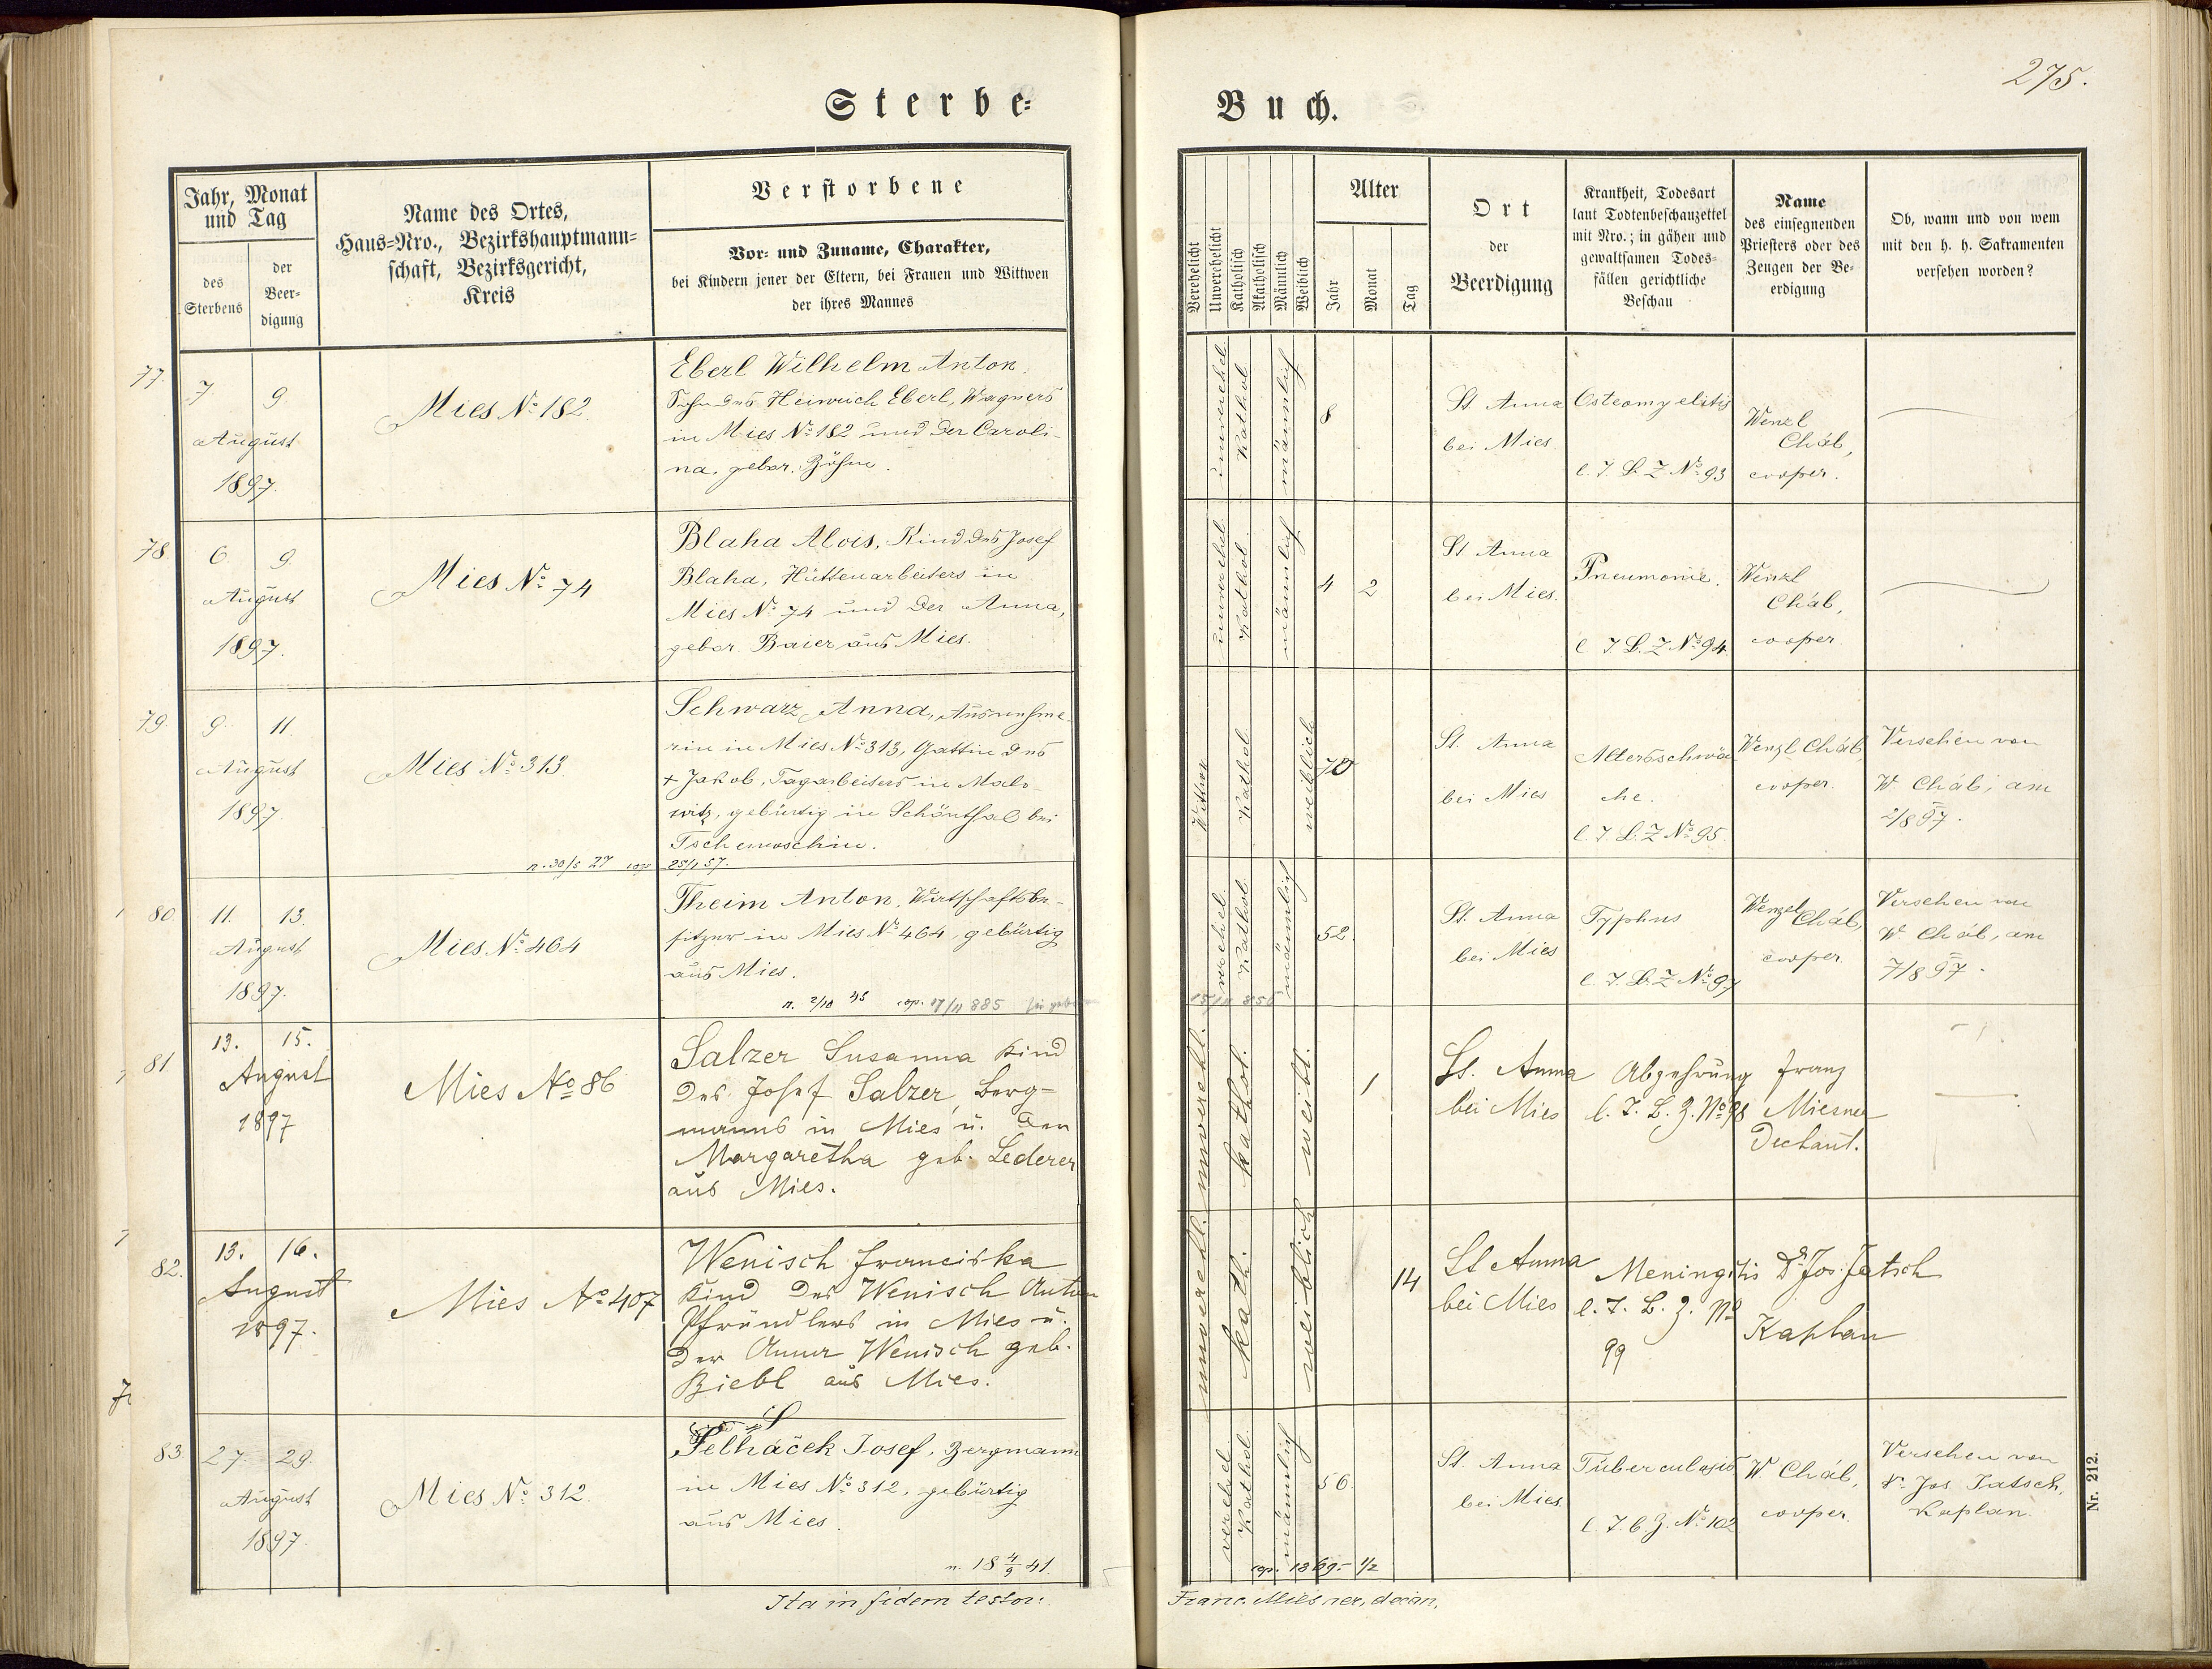 275.
Sterbe-
Buch.
Jahr, Monat
und Tag
des
Sterbens
der
Beer-
digung
Name des Ortes,
Haus-Nro., Bezirkshauptmann-
schaft, Bezirksgericht,
Kreis
Verstorbene
Vor- und Zuname, Charakter,
bei Kindern jener der Eltern, bei Frauen und Wittwen
der ihres Mannes
Verehelicht
Unverehelicht
Katholisch
Akatholisch
Männlich
Weiblich
Alter
Jahr
Monat
Tag
Ort
der
Beerdigung
Krankheit, Todesart
laut Todtenbeschauzettel
mit Nro.; in gähen und
gewaltsamen Todes-
fällen gerichtliche
Beschau
Name
des einsegnenden
Priesters oder des
Zeugen der Be-
erdigung
Ob, wann und von wem
mit den h. h. Sakramenten
versehen worden?
77
7. 9
August
1897.
Mies No 182.
Eberl Wilhelm Anton,
Sohn des Heinrich Eberl, Wagners
in Mies No 182 und der Caroli-
na, gebor.
unverehel.
Kathol.
männlich
8
St. Anna
bei Mies.
Osteomyelitis
l. T. B. Z No 93
Wenzl
Cháb,
cooper.
78
6 9.
August
1897.
Mies No 74
Blaha Alois, Kind des Josef
Blaha, Hüttenarbeiters in
Mies No 74 und der Anna,
gebor. Baier aus Mies.
unverehel.
Kathol.
männlich
4 2
St Anna
bei Mies.
Pneumonie.
l T B. Z No 94.
Wenzl
Cháb,
cooper
79.
9. 11.
August
1897.
Mies No 313.
Schwarz Anna, Ausnehme-
rin in Mies No 313, Gattin des
+ Jakob, Tagarbeiters in Malo-
witz, gebürtig in Schönthal bei
Tschernoschin.
n. 30/5 27 cop 25/1 57.
Witwe
Kathol
weiblich
70
St. Anna
bei Mies
Altersschwä-
che.
l. T B. Z No 95.
Wenzl Cháb,
cooper.
Versehen von
W. Cháb, am
2/8 97.
80
11. 13.
August
1897.
Mies No 464
Theim Anton, Wirtschaftsbe-
sitzer in Mies No 464, gebürtig
aus Mies.
n. 2/10 45 cop. 17/11 885
verehel.
Kathol.
männlich
52.
St. Anna
bei Mies
Typhus
l. T. B. Z No 97
Wenzel
Cháb,
cooper
Versehen von
W. Cháb, am
7/8 97.
81
13. 15.
August
1897
Mies No 86
Salzer Susanna Kind
des Josef Salzer, Berg-
manns in Mies u. der
Margaretha geb. Lederer
aus Mies.
unverehl.
kathol.
weibl.
1
St. Anna
bei Mies
Abzehrung
l. T. B. Z. No 98
Franz
Miesner
Dechant.
82.
13. 16.
August
1897.
Mies No 407
Wenisch Franciska
Kind des Wenisch Anton
Pfründlers in Mies u.
der Anna Wenisch geb.
Biebl aus Mies.
unverehl.
kath.
weiblich
14
St Anna
bei Mies
Meningitis
l. T. B. Z. No
99
Dr Jos. Jatsch
Kaplan
83.
27. 29.
August
1897.
Mies No 312.
Pelháček Josef, Bergmann
in Mies No 312, gebürtig
aus Mies.
n. 18 4/9 41.
verehel.
Kathol.
männlich
56.
cop. 1869 - 1/2
St. Anna
bei Mies.
Tuberculosis
l. T. B Z. No 102
W Cháb,
cooper.
Versehen von
Dr. Jos. Jatsch,
Kaplan.
Nr. 212.
Ita in fidem testor:
Franc. Miesner, decan.